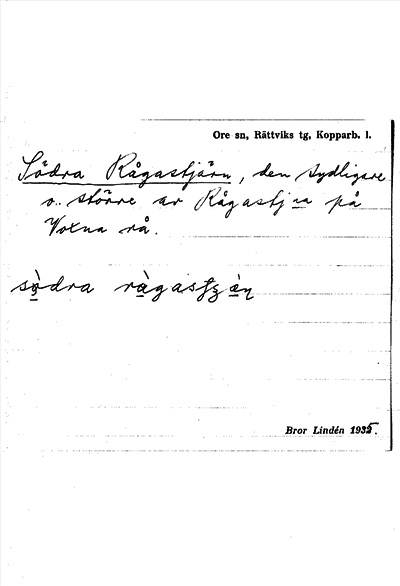 Ore sn, Rättviks tg, Kopparb. l.
Södra Rågastjärn, den sydligare
o. större av Rågastj:na på
Voxna rå.
Bror Lindén 1935.